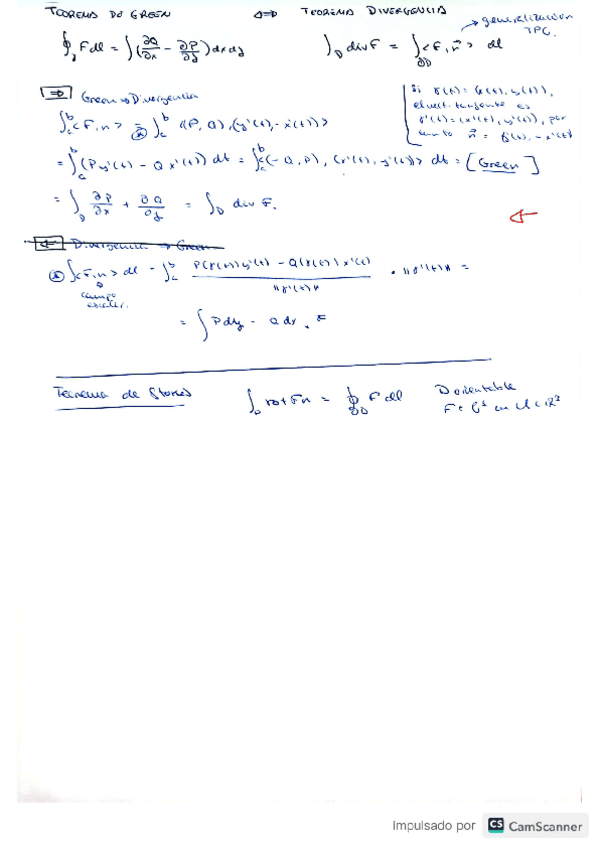 TEOREMA DE GREEN ⇐⇒ TEOREMA DIVERGENCIA → generalización TFC.
∮ F dl = ∫ (∂Q/∂x − ∂P/∂y) dx dy    ∫_D div F = ∫_∂D <F, n⃗> dl
⇒ Green → Divergencia
Si γ(t) = (x(t), y(t)),
el vect. tangente es
γ'(t) = (x'(t), y'(t)), por
tanto n⃗ = (y'(t), −x'(t))
∫_a^b <F, n> = ∫_a^b <(P, Q), (y'(t), −x'(t))>
= ∫_a^b (P y'(t) − Q x'(t)) dt = ∫_a^b <(−Q, P), (x'(t), y'(t))> dt = [Green]
= ∫_D ∂P/∂x + ∂Q/∂y = ∫_D div F.
⇐ Divergencia → Green
∫ <F, n> dl = ∫_a^b P(γ(t)) y'(t) − Q(γ(t)) x'(t) / ||γ'(t)|| · ||γ'(t)|| =
campo
escalar.
= ∫ P dy − Q dx.
Teorema de Stokes    ∫_D rot F n = ∮_∂D F dl    D orientable
F ∈ C¹ en U ⊂ R³
Impulsado por CS CamScanner